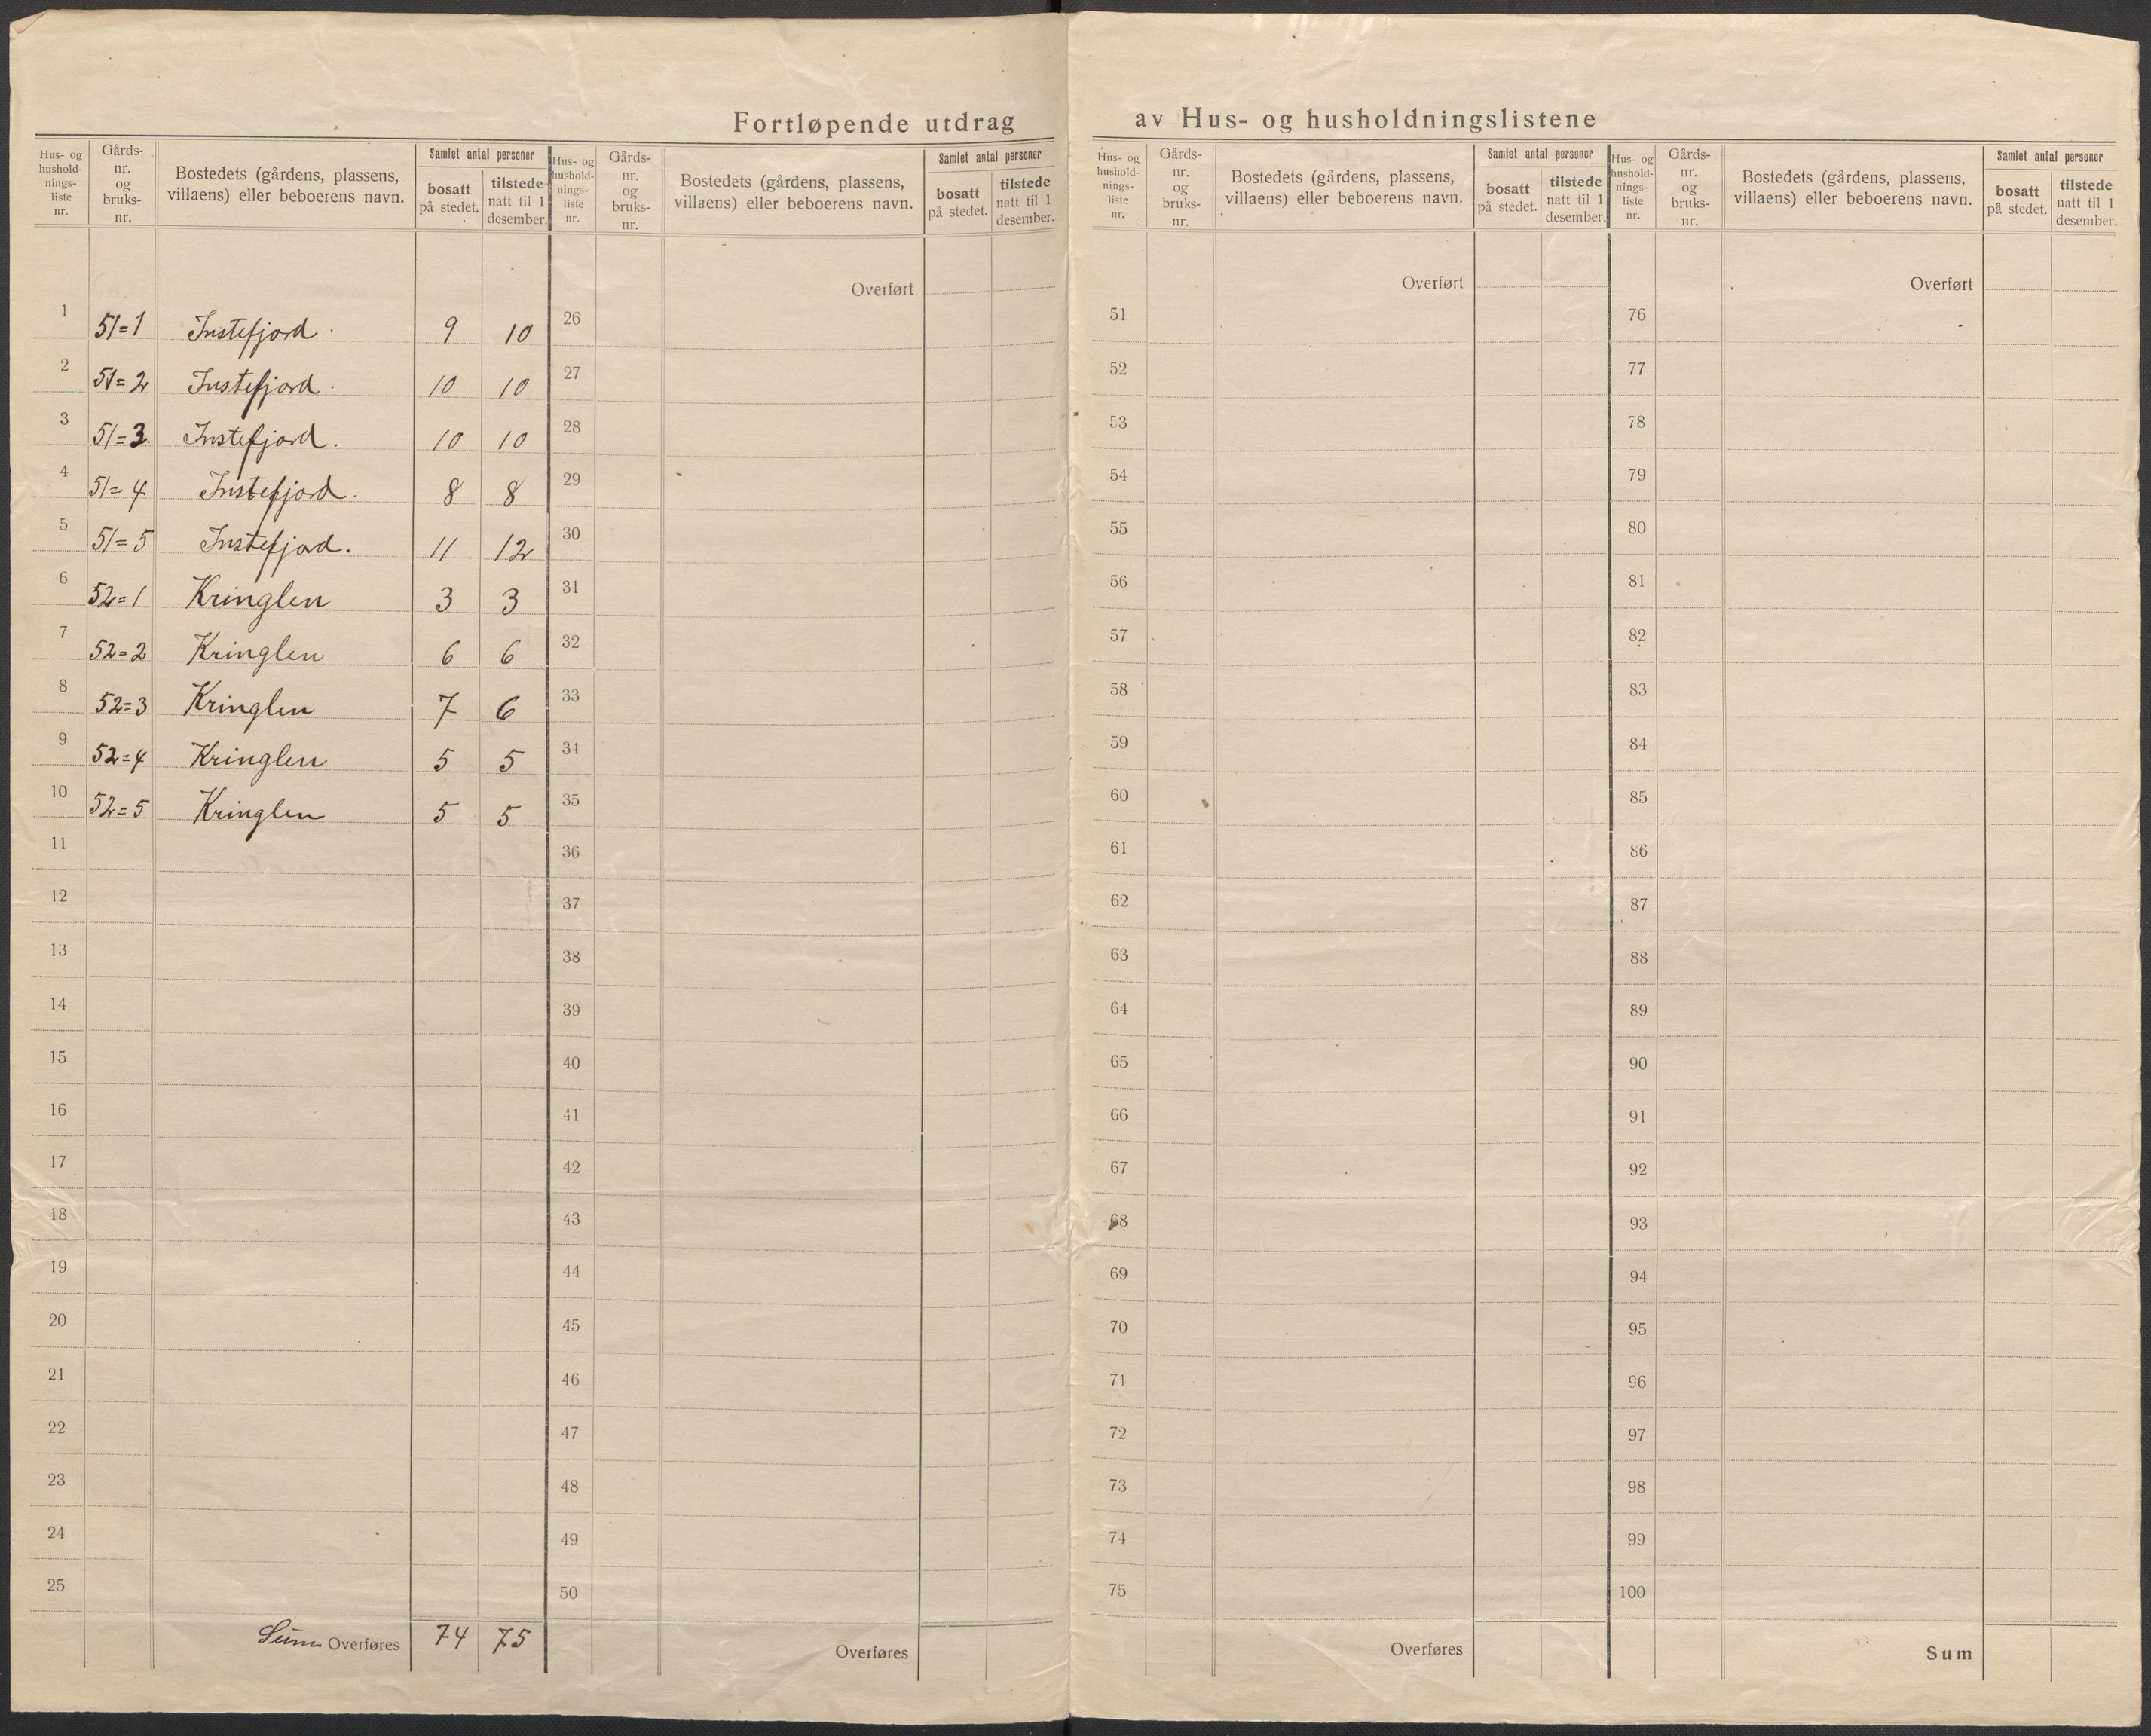 Fortløpende utdrag av Hus- og husholdningslistene
Hus- og hushold- nings- liste nr. | Gårds- nr. og bruks- nr. | Bostedets (gårdens, plassens, villaens) eller beboerens navn. | Samlet antal personer | bosatt på stedet. | tilstede natt til 1 desember.
Hus- og hushold- nings- liste nr. | Gårds- nr. og bruks- nr. | Bostedets (gårdens, plassens, villaens) eller beboerens navn. | Samlet antal personer | bosatt på stedet. | tilstede natt til 1 desember.
Hus- og hushold- nings- liste nr. | Gårds- nr. og bruks- nr. | Bostedets (gårdens, plassens, villaens) eller beboerens navn. | Samlet antal personer | bosatt på stedet. | tilstede natt til 1 desember.
Hus- og hushold- nings- liste nr. | Gårds- nr. og bruks- nr. | Bostedets (gårdens, plassens, villaens) eller beboerens navn. | Samlet antal personer | bosatt på stedet. | tilstede natt til 1 desember.
Overført Overført Overført
1 51=1 Instefjord. 9 10 26 51 76
2 51=2 Instefjord. 10 10 27 52 77
3 51=3. Instefjord. 10 10 28 53 78
4 51=4 Instefjord. 8 8 29 54 79
5 51=5 Instefjord. 11 12 30 55 80
6 52=1 Kringlen 3 3 31 56 81
7 52=2 Kringlen 6 6 32 57 82
8 52=3 Kringlen 7 6 33 58 83
9 52=4 Kringlen 5 5 34 59 84
10 52=5 Kringlen 5 5 35 60 85
11 36 61 86
12 37 62 87
13 38 63 88
14 39 64 89
15 40 65 90
16 41 66 91
17 42 67 92
18 43 68 93
19 44 69 94
20 45 70 95
21 46 71 96
22 47 72 97
23 48 73 98
24 49 74 99
25 50 75 100
Sum Overføres 74 75 Overføres Overføres Sum